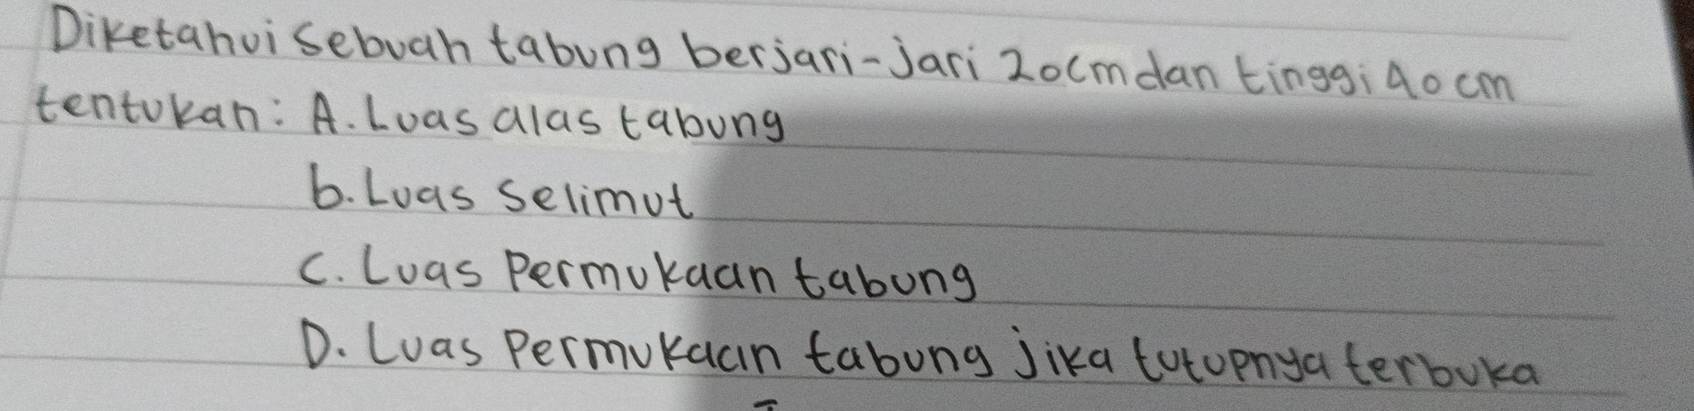 Diketahui sebuah tabung berjari-jari 20cm dan tinggi 40 cm
tentukan: A. Luas alas tabung
b. Luas selimut
C. Luas Permukaan tabung
D. Luas Permukaan tabung jika tutupnya terbuka